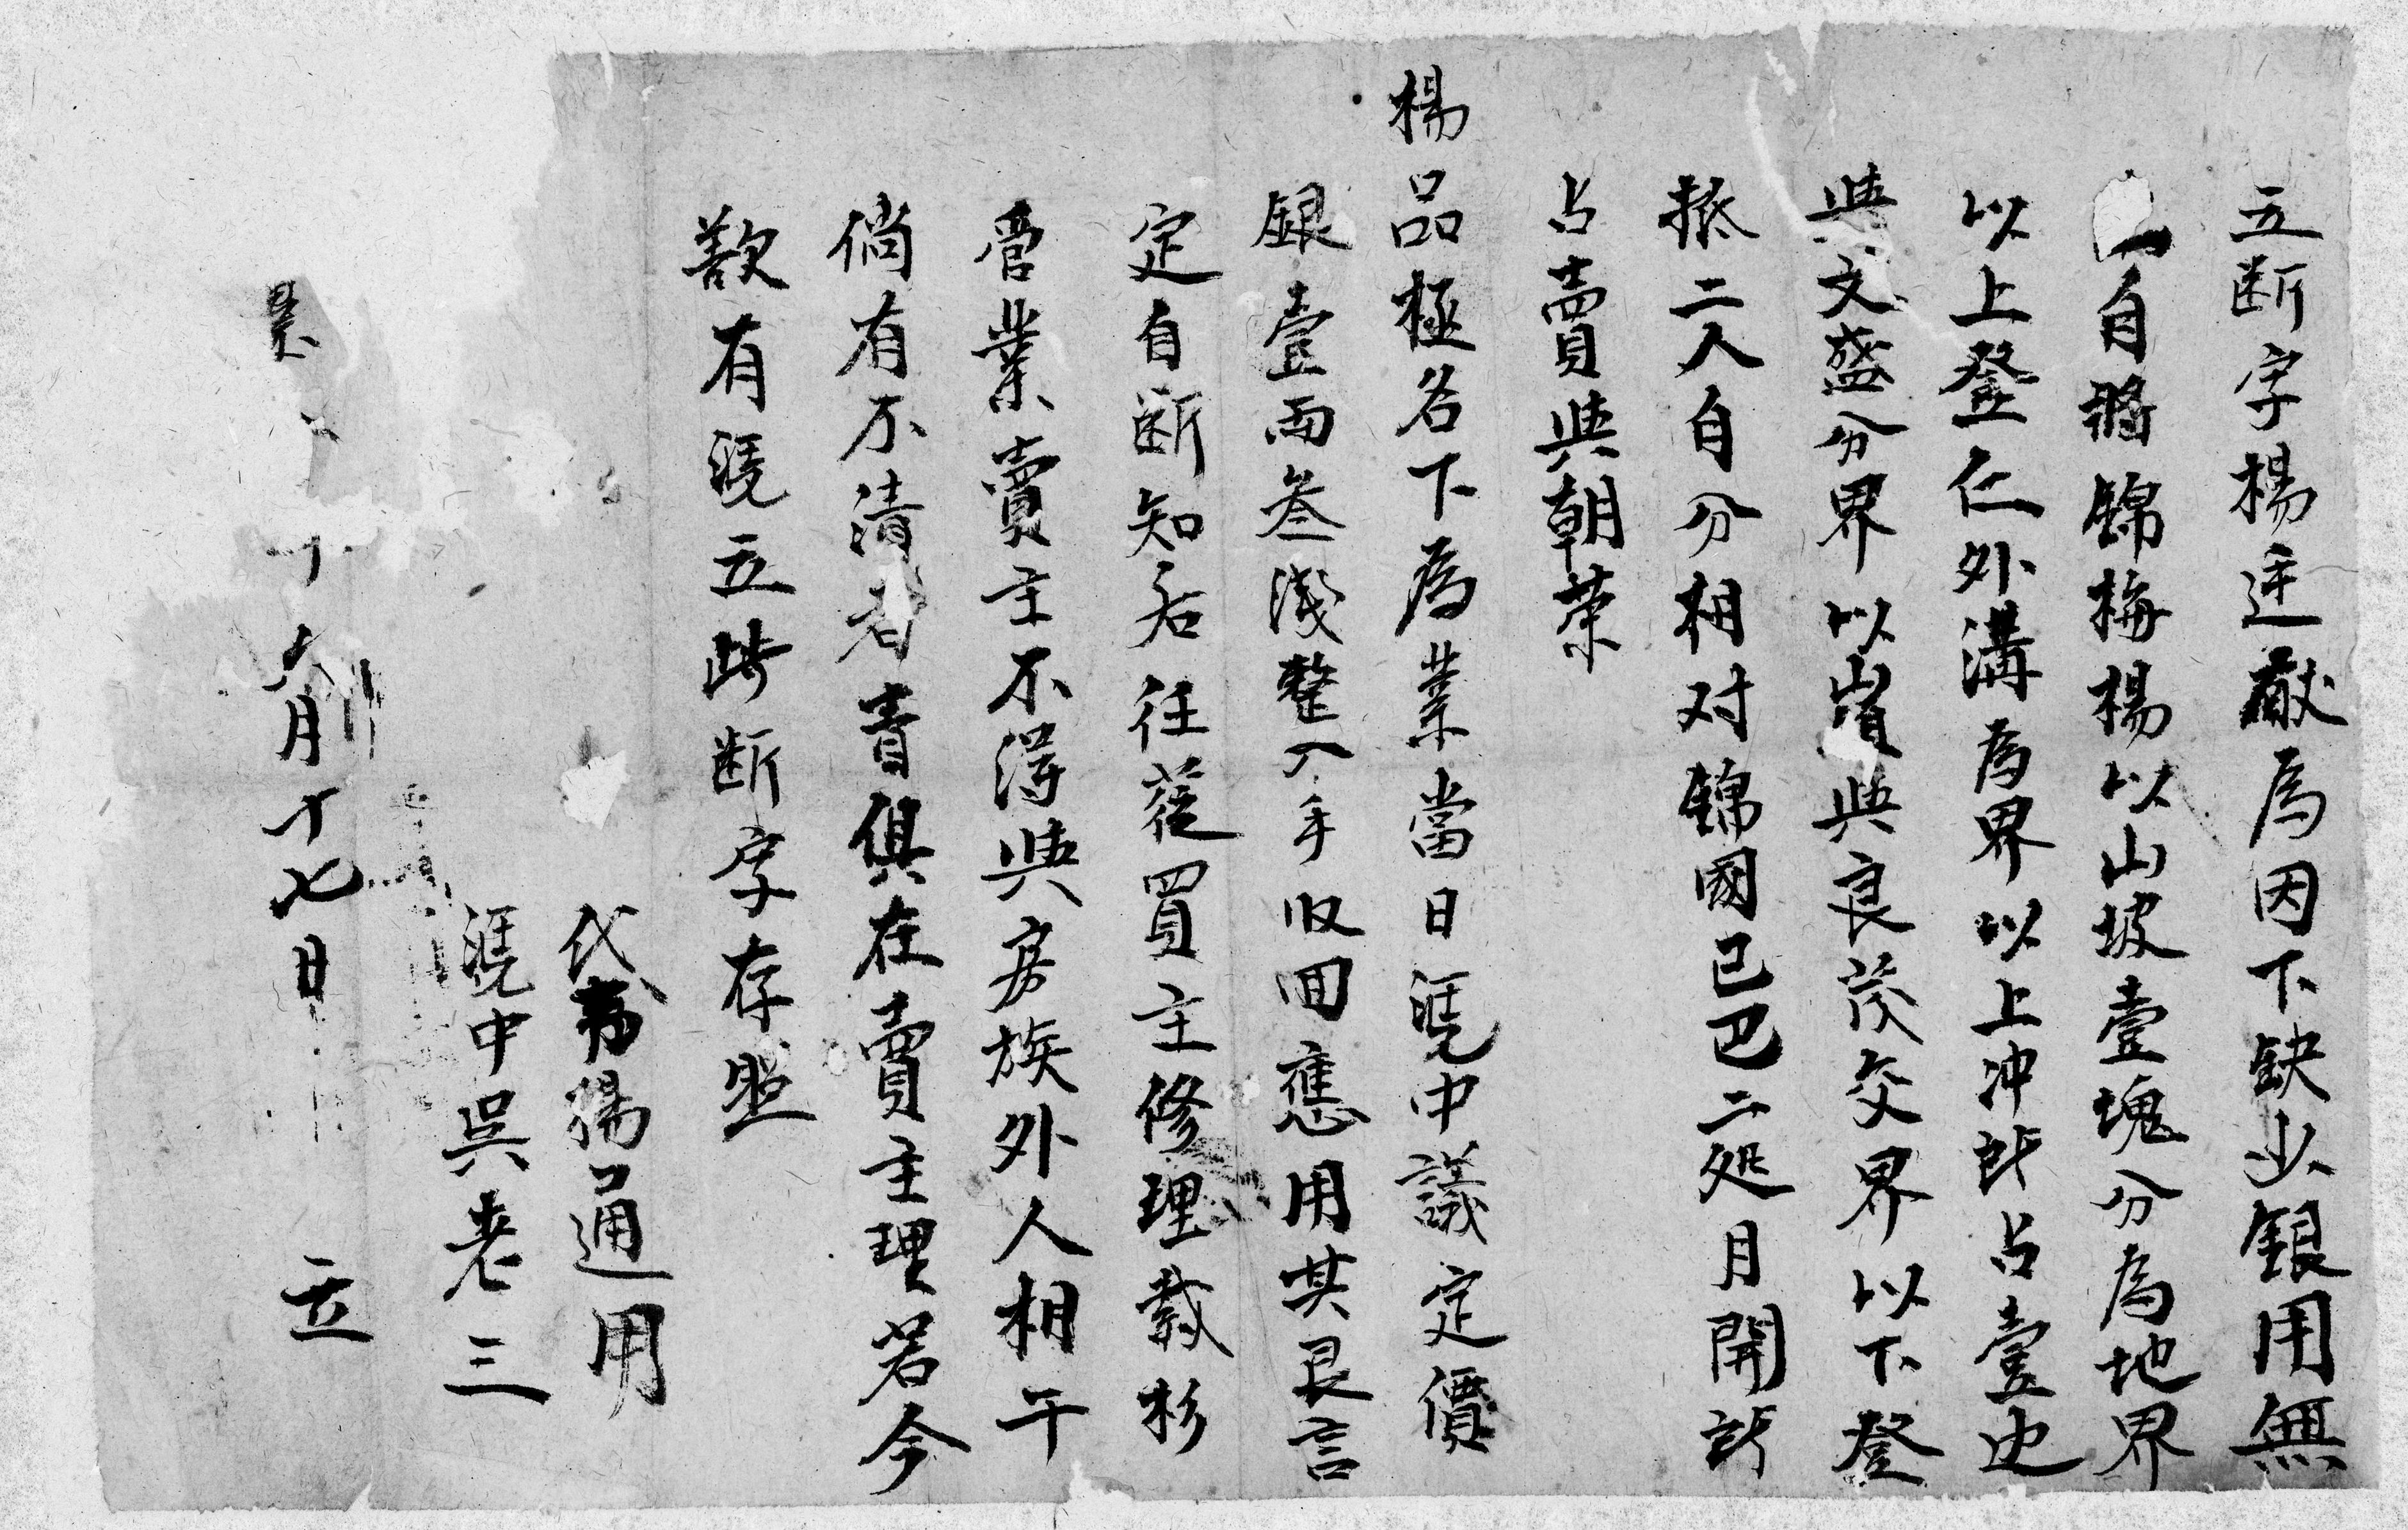 立断字楊廷献為因下缺少銀用無
自將錦梅楊以山坡壹塊分為地界
以上登仁外溝為界以上冲 占壹边
與文盛分界以嶺與良茂交界以下登
抵二人自分相对錦國已 二処月開
占賣與朝荣
楊品極名下為業當日凴中議定價
銀壹両叁淺整入手收回應用其艮言
定自断知后任從買主修理栽杉
管業賣主不得與房族外人相干
倘有不清者 俱在賣主理若今
歎有凴立此断字存照
代 楊通用
凴中吳老三
十六月十七日 立